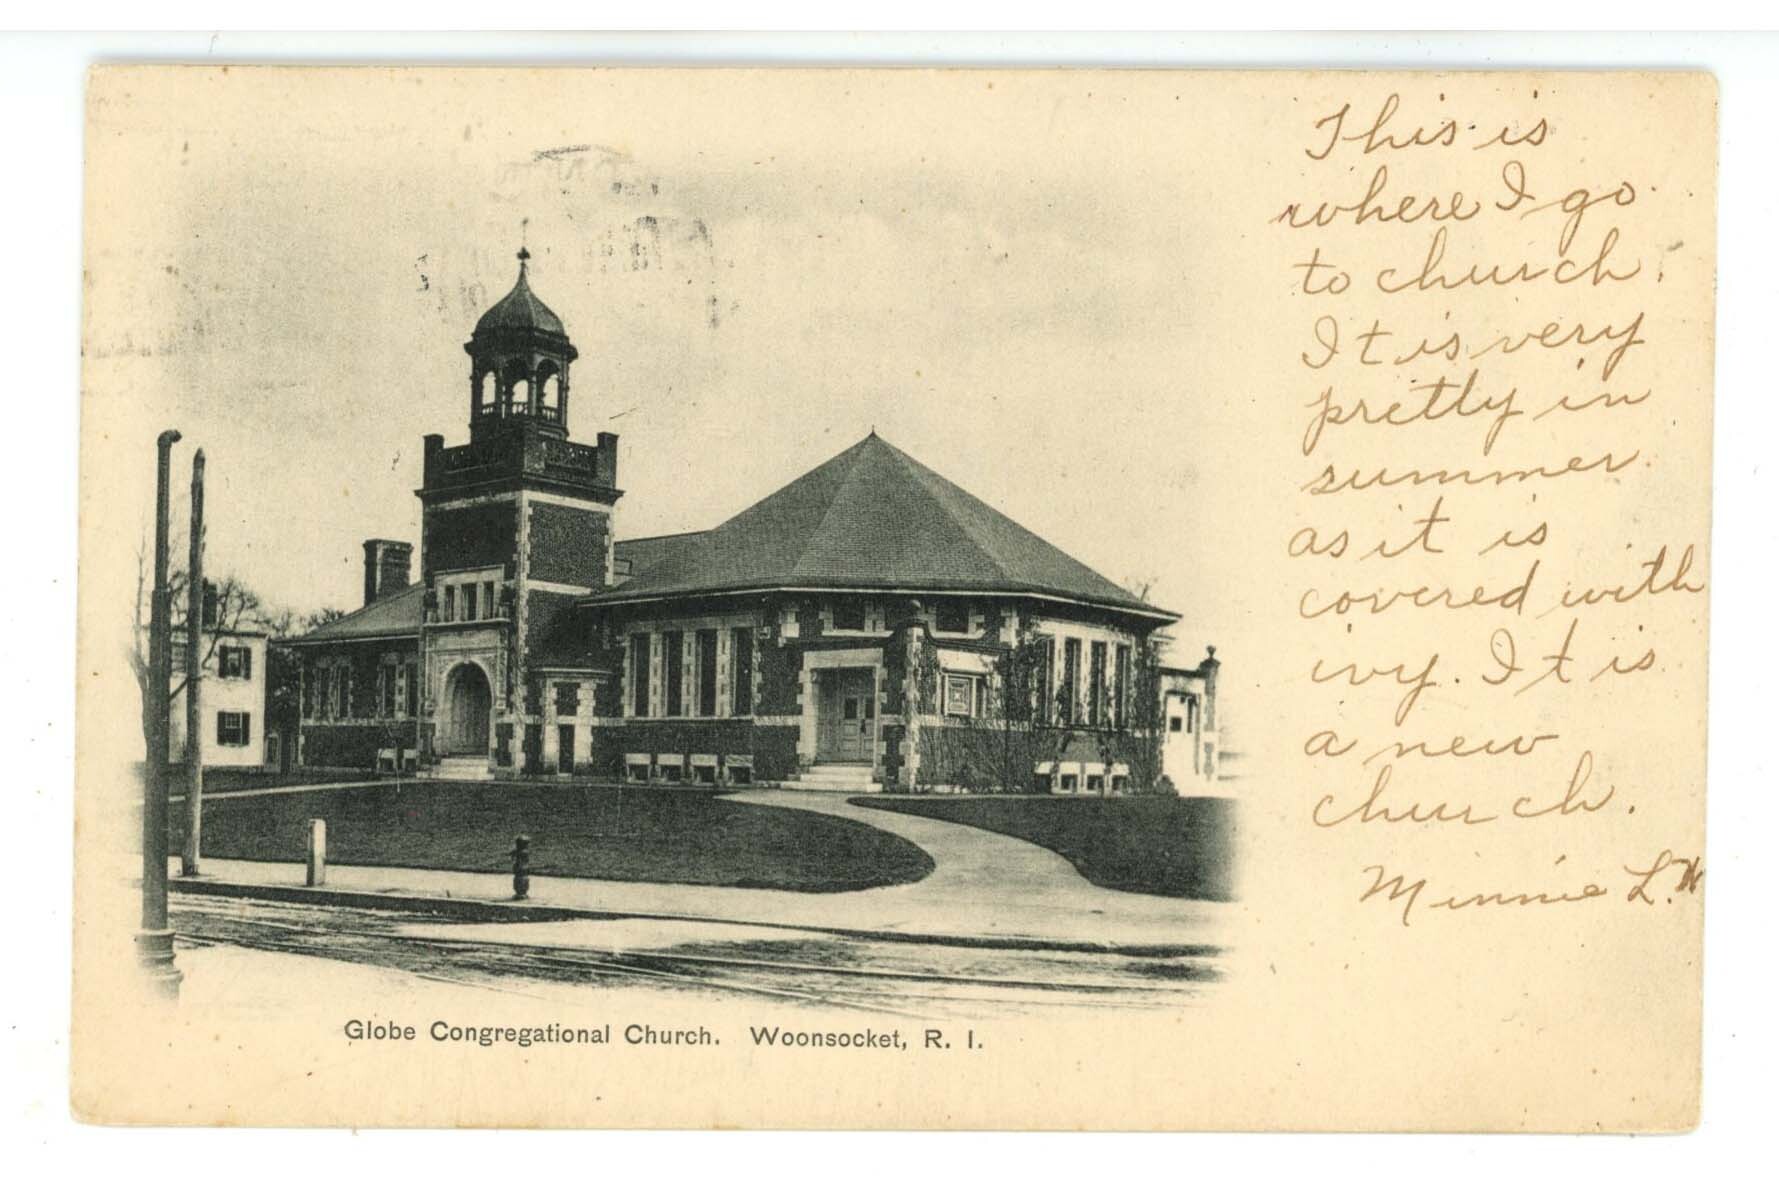 This is
where I go
to church.
It is very
pretty in
summer
as it is
covered with
ivy. It is
a new
church.
Minnie L. W
Globe Congregational Church. Woonsocket, R. I.